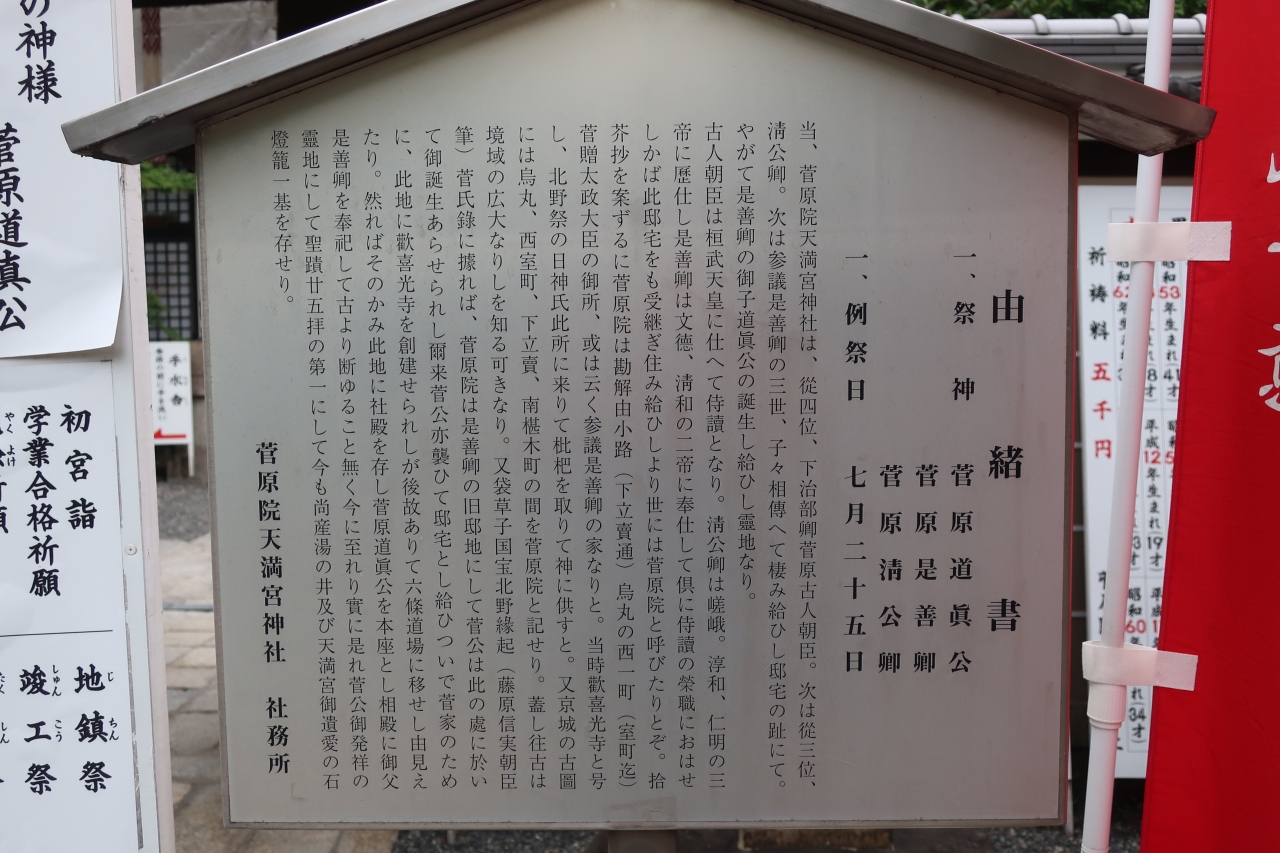 由緒書
一、祭神 菅原道眞公
菅原是善卿
菅原清公卿
一、例祭日 七月二十五日
当、菅原院天満宮神社は、從四位、下治部卿菅原古人朝臣。次は從三位、
清公卿。次は参議是善卿の三世、子々相傳へて棲み給ひし邸宅の趾にて。
やがて是善卿の御子道眞公の誕生し給ひし靈地なり。
古人朝臣は桓武天皇に仕へて侍讀となり。清公卿は嵯峨。淳和、仁明の三
帝に歷仕し是善卿は文徳、清和の二帝に奉仕して倶に侍讀の榮職におはせ
しかば此邸宅をも受継ぎ住み給ひしより世には菅原院と呼びたりとぞ。拾
芥抄を案ずるに菅原院は勘解由小路（下立賣通）烏丸の西一町（室町迄）
菅贈太政大臣の御所、或は云く参議是善卿の家なりと。当時歡喜光寺と号
し、北野祭の日神氏此所に来りて枇杷を取りて神に供すと。又京城の古圖
には烏丸、西室町、下立賣、南椹木町の間を菅原院と記せり。蓋し往古は
境域の広大なりしを知る可きなり。又袋草子国宝北野緣起（藤原信実朝臣
筆）菅氏錄に據れば、菅原院は是善卿の旧邸地にして菅公は此の處に於い
て御誕生あらせられし爾来菅公亦襲ひて邸宅とし給ひついで菅家のため
に、此地に歡喜光寺を創建せられしが後故ありて六條道場に移せし由見え
たり。然ればそのかみ此地に社殿を存し菅原道眞公を本座とし相殿に御父
是善卿を奉祀して古より断ゆること無く今に至れり實に是れ菅公御発祥の
靈地にして聖蹟廿五拝の第一にして今も尚産湯の井及び天満宮御遺愛の石
燈籠一基を存せり。
菅原院天満宮神社 社務所
の神様
菅原道真公
初宮詣
学業合格祈願
地鎮祭
じちん
竣工祭
しゅんこう
手水舎
祈祷料 五千円